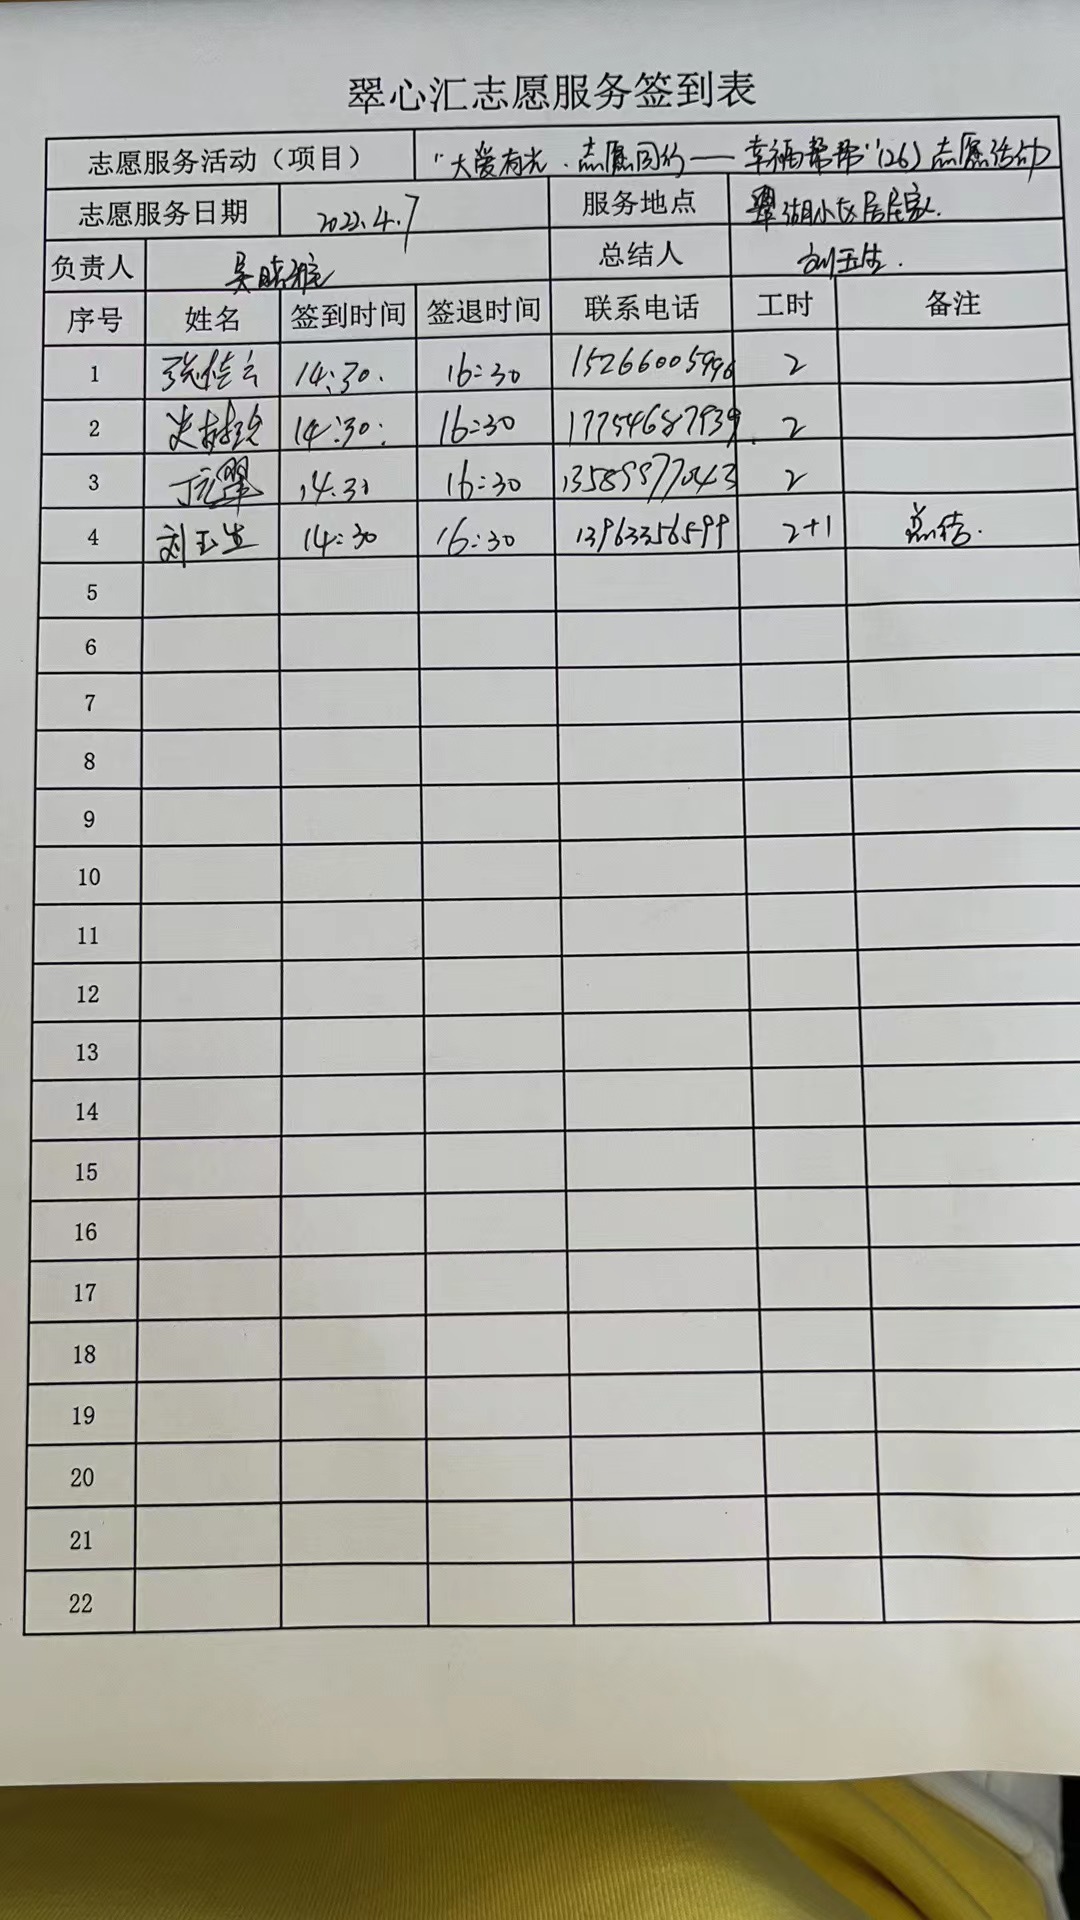 翠心汇志愿服务签到表
志愿服务活动（项目） “大爱有光、志愿同行——幸福帮帮”（26）志愿活动
志愿服务日期 2022.4.7 服务地点 翠湖小区居民家.
负责人 总结人 刘玉生.
序号 姓名 签到时间 签退时间 联系电话 工时 备注
1 张佳云 14:30. 16:30 15266005996 2
2 14:30: 16:30 17754687939. 2
3 16:30 2
4 刘玉生 14:30 16:30 13963356599 2+1 总结.
5
6
7
8
9
10
11
12
13
14
15
16
17
18
19
20
21
22